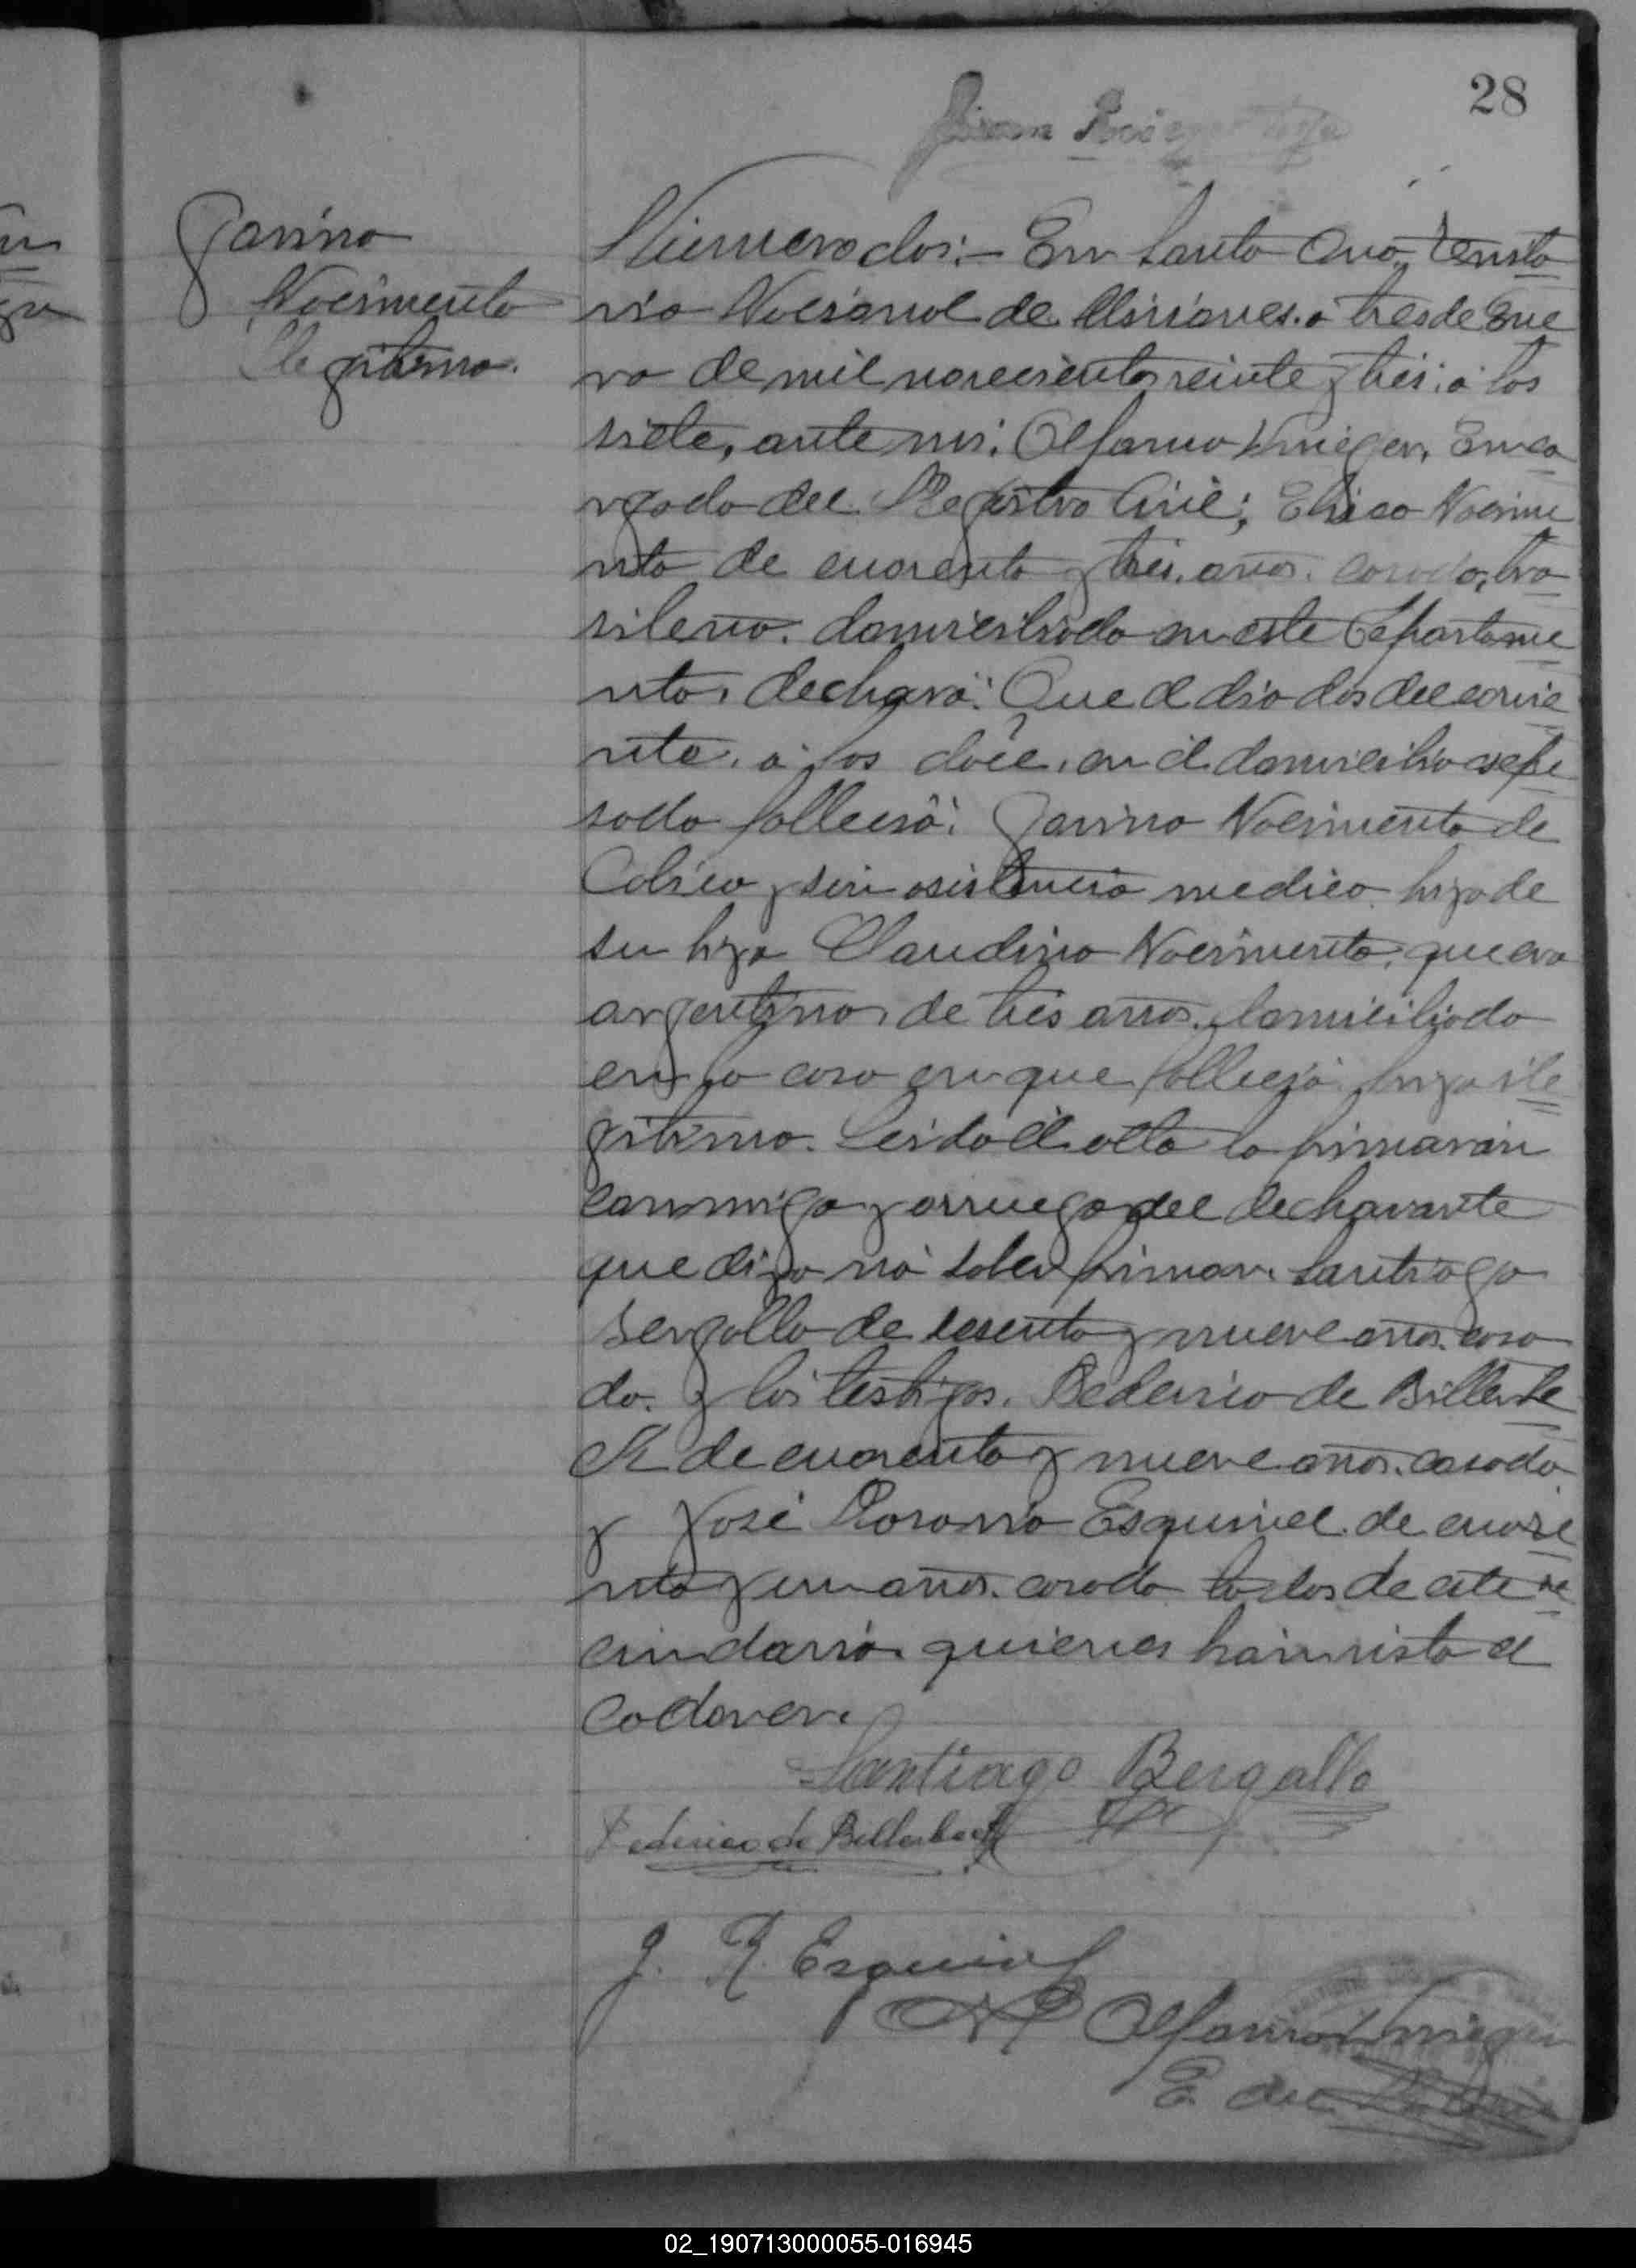 28
Juan
Janino
Nacimento
Ilegitimo.
Número dos:- En Santa Ana, Territo
rio Nacional de Misiones. á tres de Ene
ro de mil novecientos veinte y tres; á las
siete, ante mi: Alfonso Krieger, Enca
rgado del Registro Civil; Eliseo Nacime
nto de cuarenta y tres. años. casado, bra
sileno. domiciliado en este Departame
nto, declaró: Que el dia dos del corrie
nte, á las doce, en el domicilio expre
sado falleció: Janino Nacimento de
Colico y sin asistencia medica. hijo de
su hija Claudina Nacimento, que era
argentino, de tres años, domiciliado
en la casa en que falleció, hijo ile
gitimo. Leida el acta la firmarón
conmigo y arruego del declarante
que dijo nó saber firmar. Santiago
Bergallo de sesenta y nueve años. casa
do. y los testigos. Federico de Billerbe
ck de cuarenta y nueve años. casado
y José Rosario Esquivel de cuare
nta y un años. casado todos de este ve
cindario quienes hán visto el
cadaver.
Santiago Bergallo
Federico de Billerbeck
J. R. Esquivel
Alfonso Krieger
E. del
02_190713000055-016945